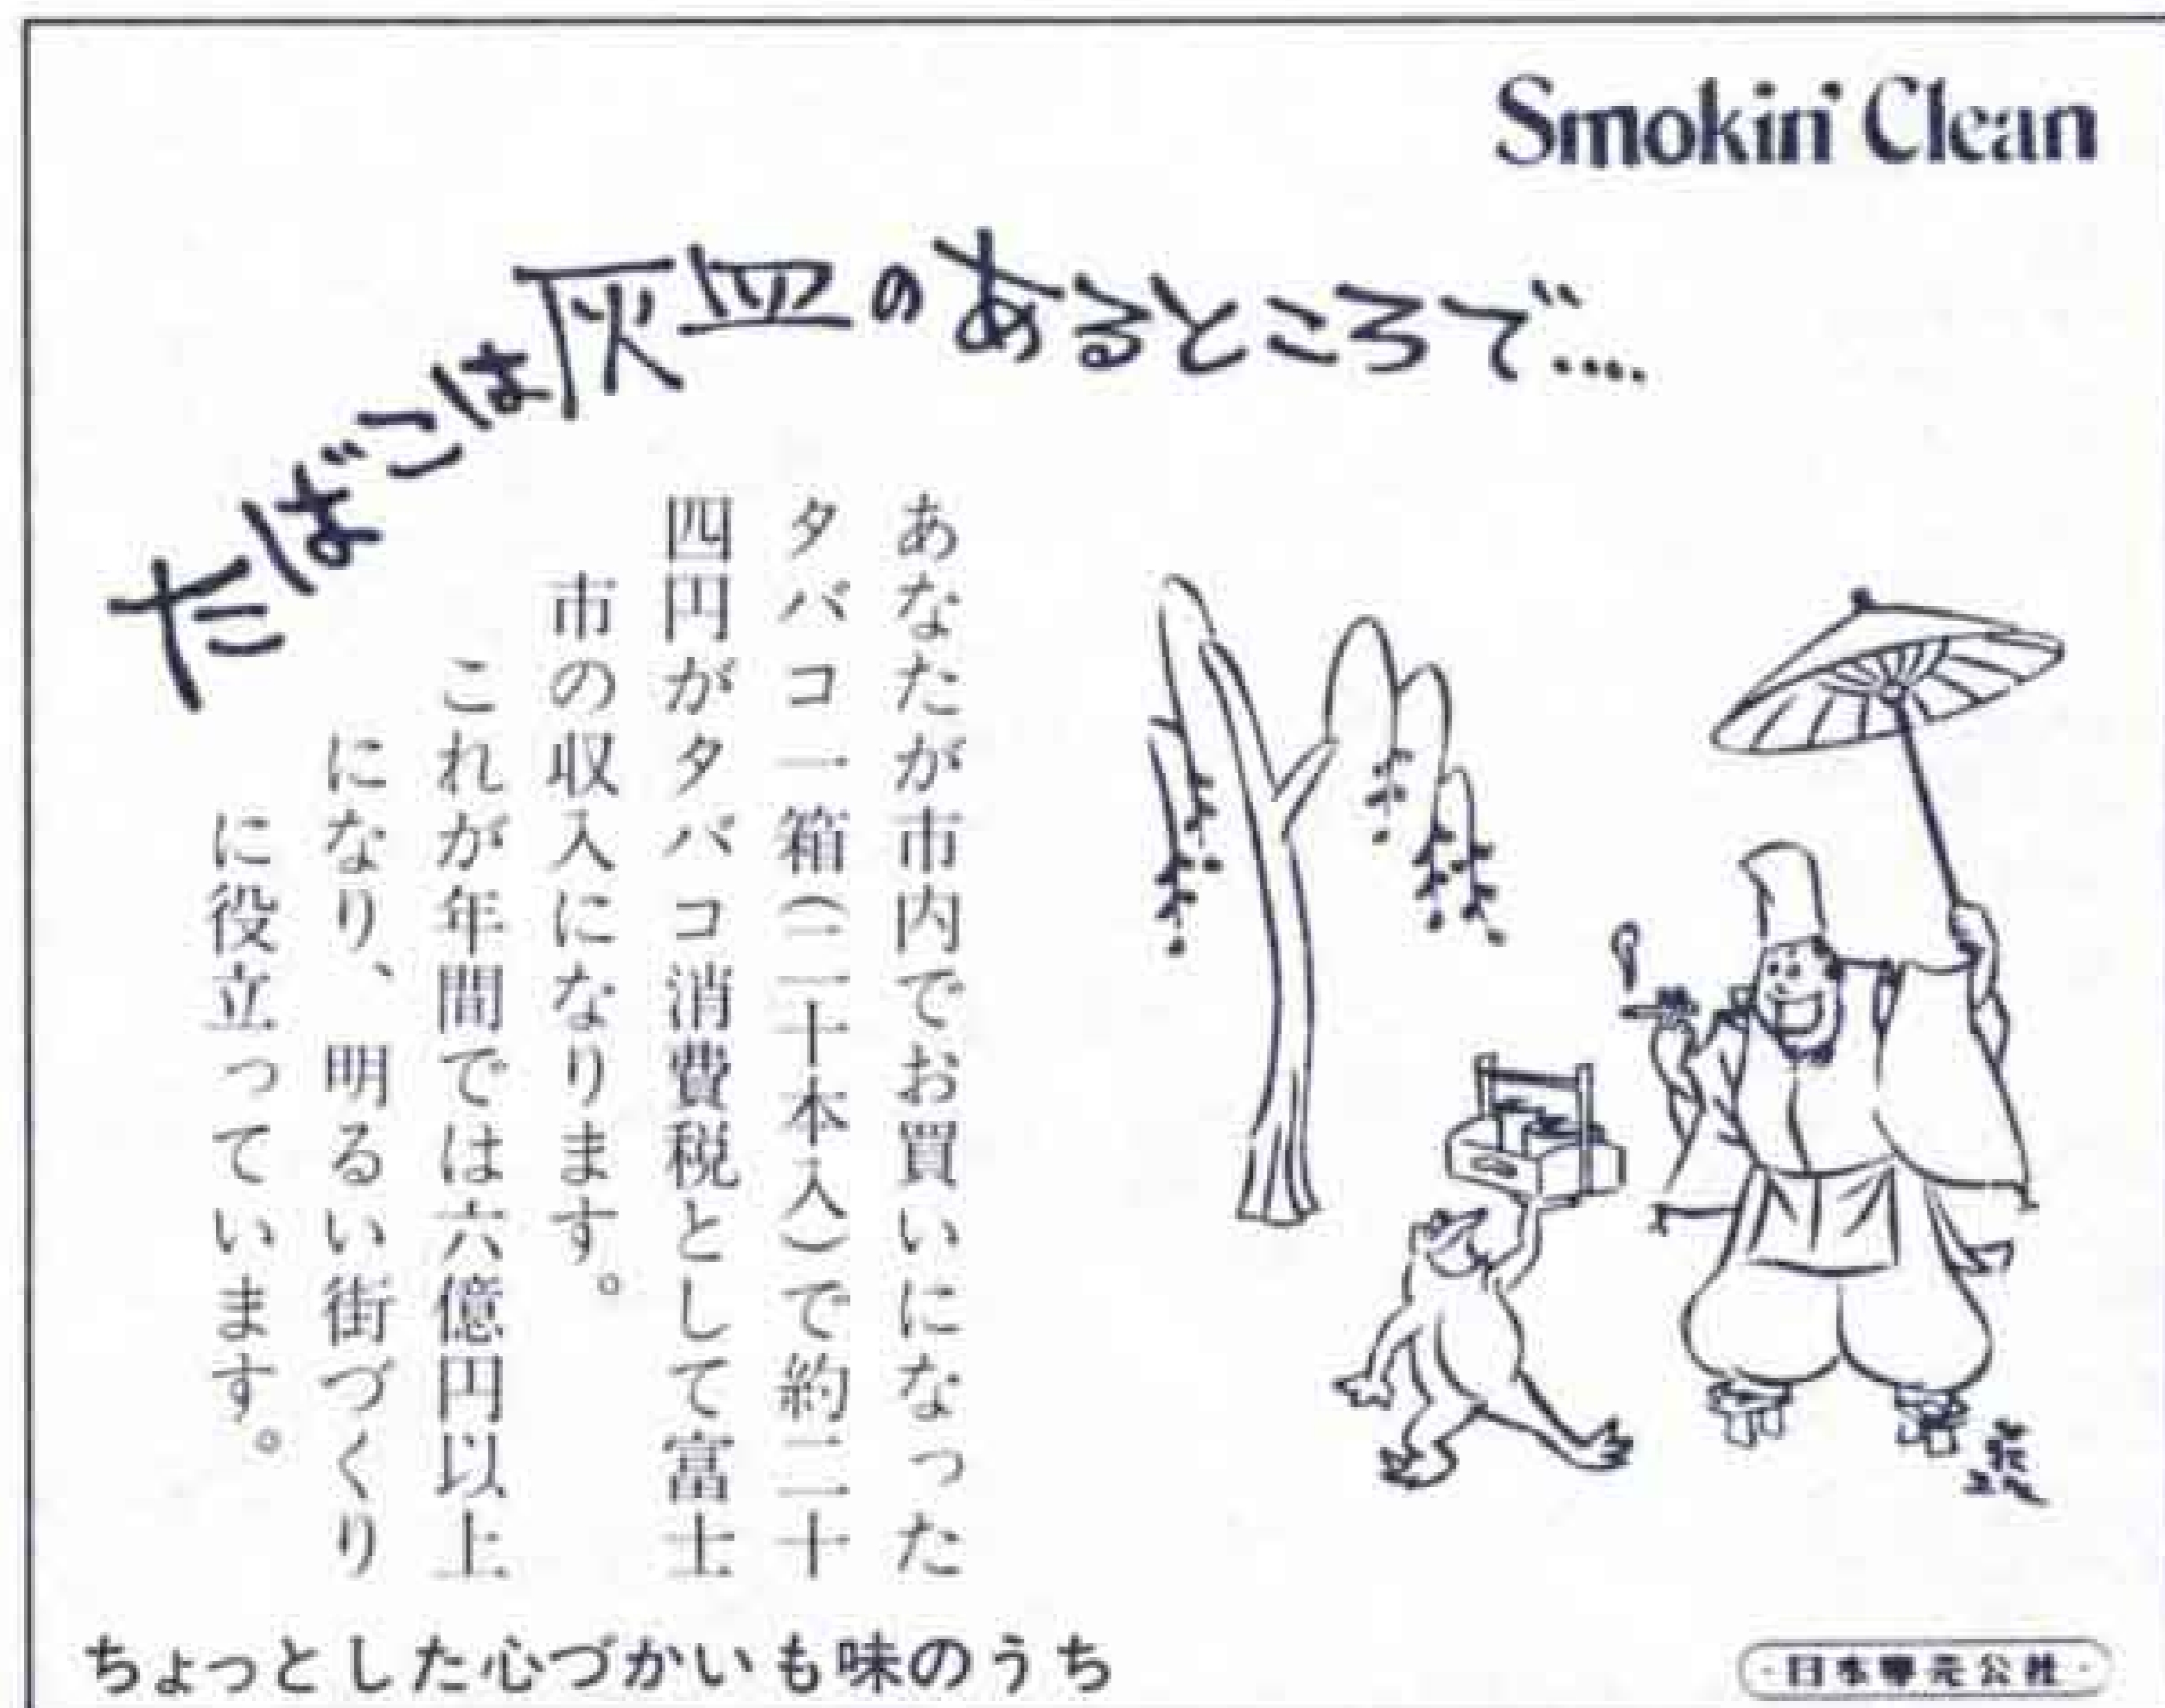 Smokin' Clean
たばこは灰皿のあるところで....
あなたが市内でお買いになった
タバコ一箱(二十本入)で約二十
四円がタバコ消費税として富士
市の収入になります。
これが年間では六億円以上
になり、明るい街づくり
に役立っています。
ちょっとした心づかいも味のうち
日本専売公社